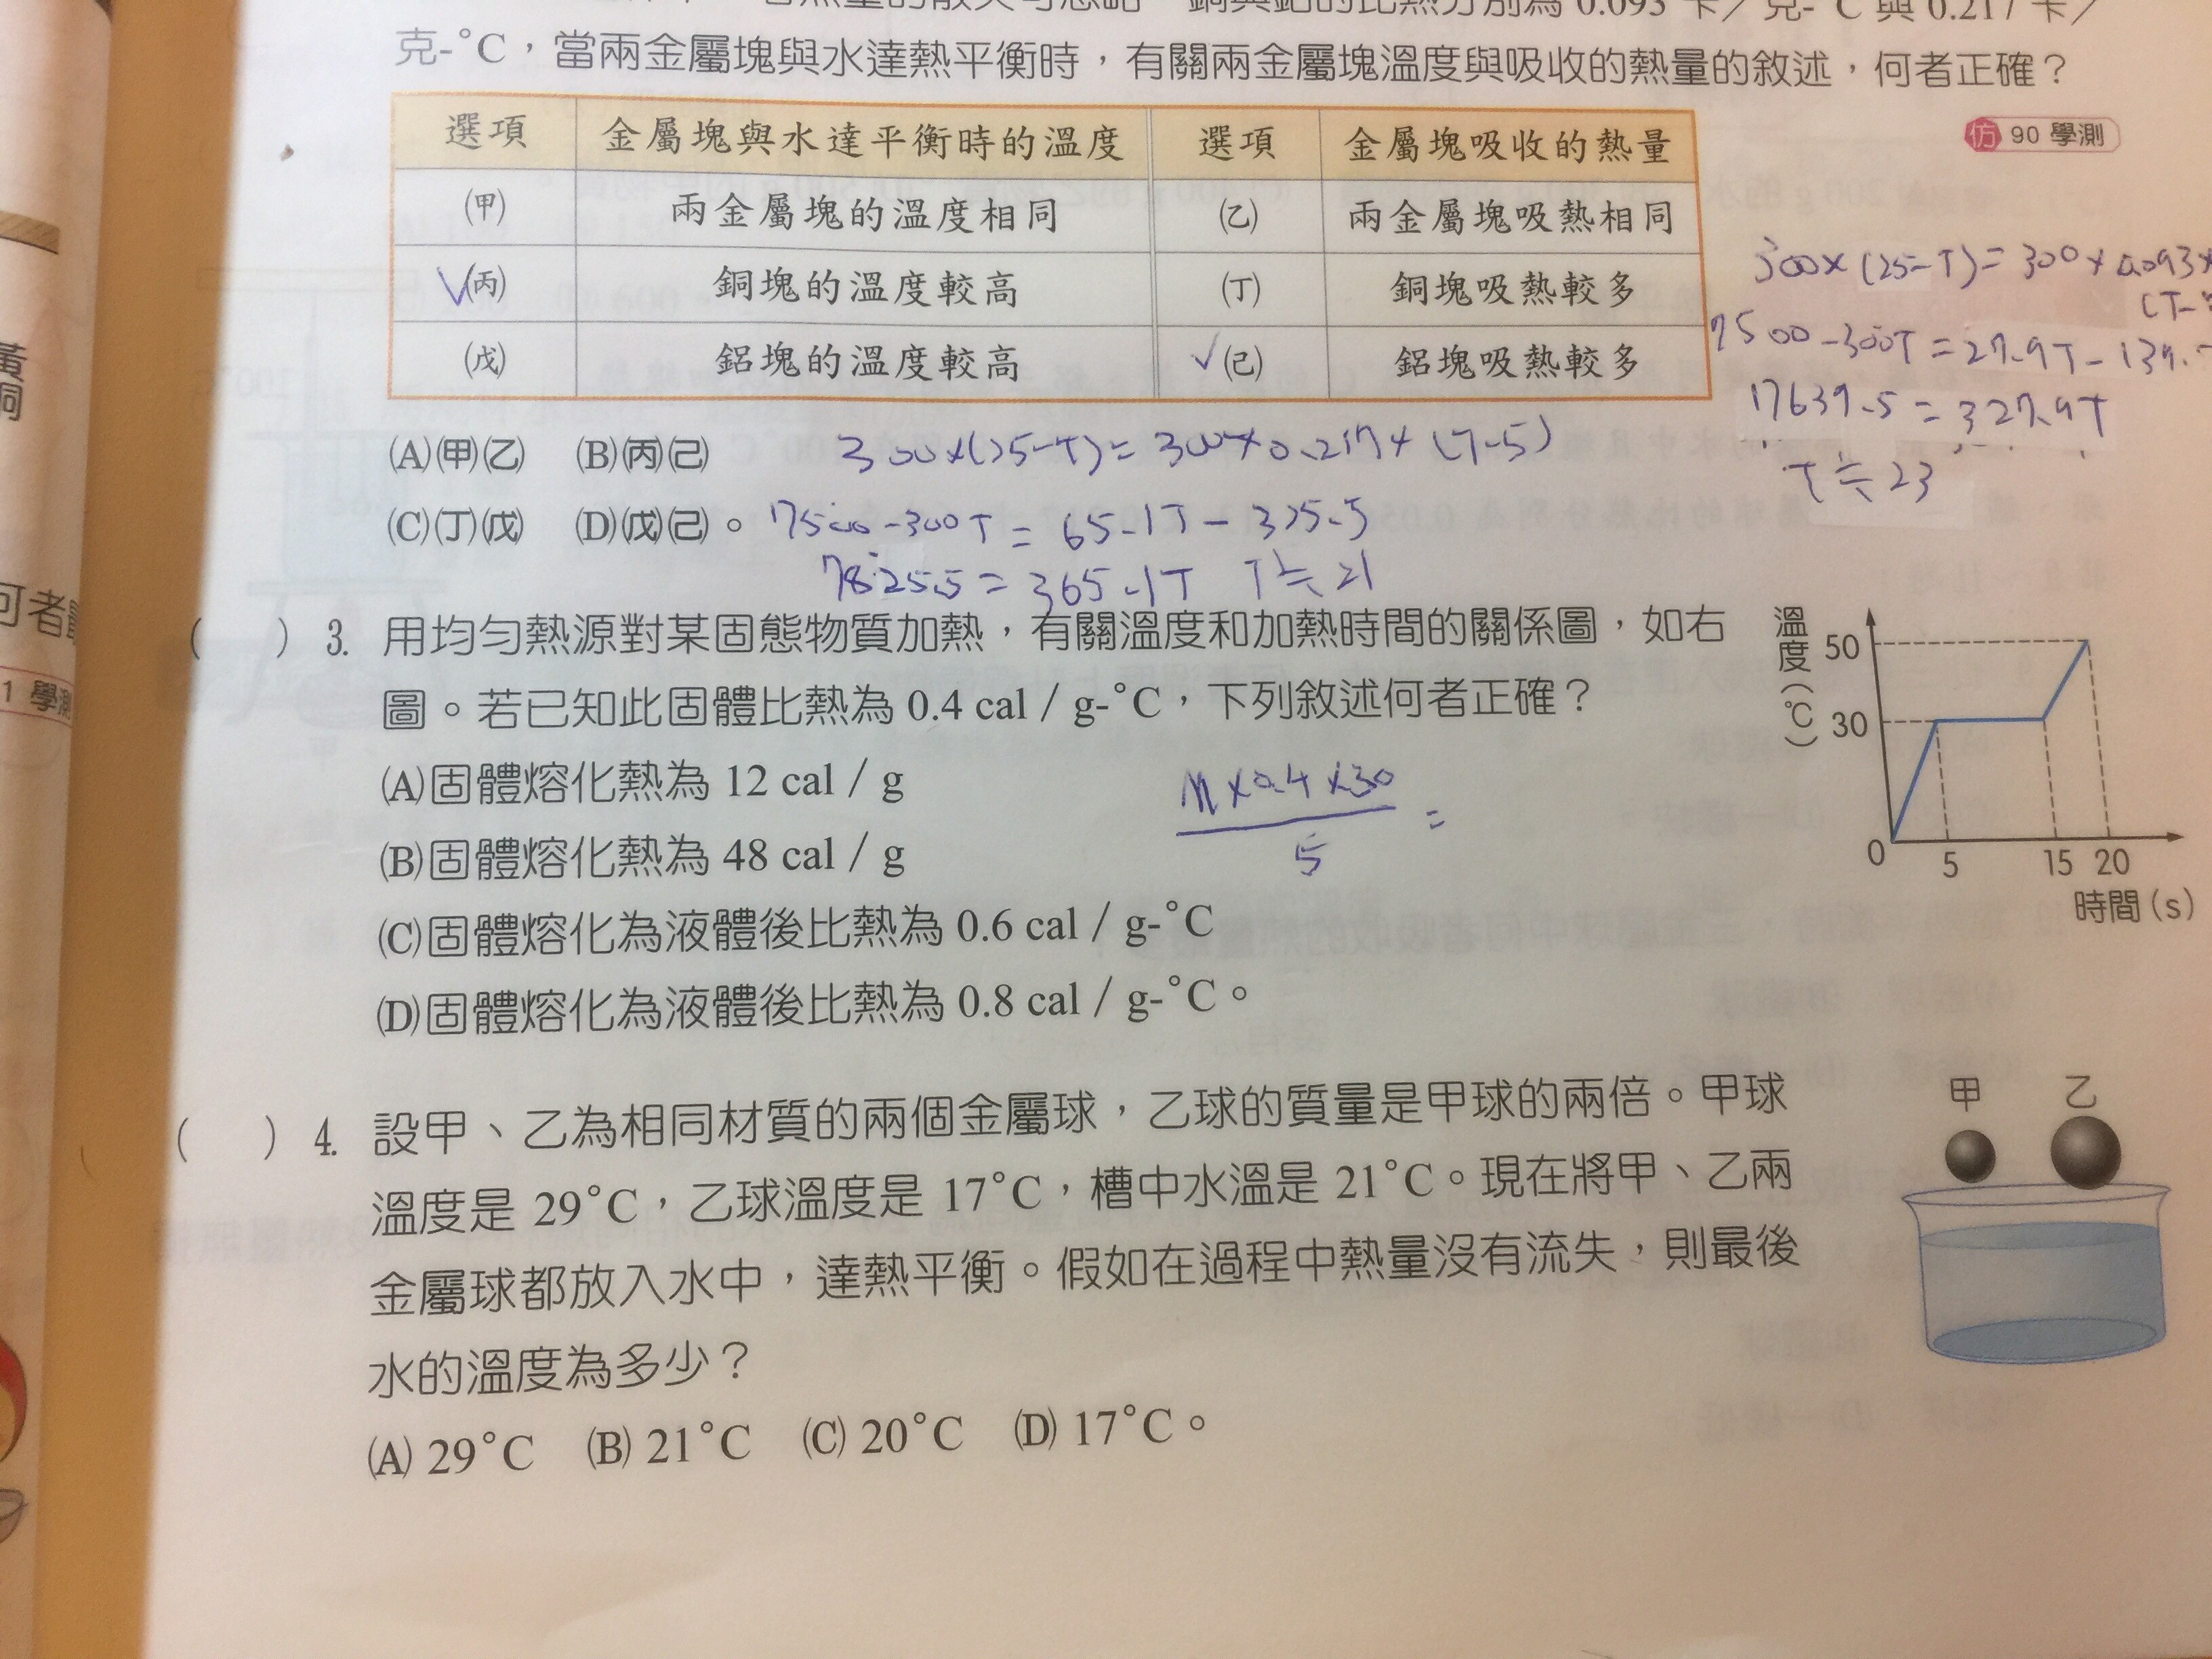 若熱量的散失可忽略 銅與鋁的比熱分別為 0.093 卡／克-°C 與 0.217 卡／
克-°C，當兩金屬塊與水達熱平衡時，有關兩金屬塊溫度與吸收的熱量的敘述，何者正確？
仿 90 學測
選項 金屬塊與水達平衡時的溫度 選項 金屬塊吸收的熱量
(甲) 兩金屬塊的溫度相同 (乙) 兩金屬塊吸熱相同
✓(丙) 銅塊的溫度較高 (丁) 銅塊吸熱較多
(戊) 鋁塊的溫度較高 ✓(己) 鋁塊吸熱較多
300×(25-T)=300×0.093×
(T-
7500-300T=27.9T-139.
7639.5=327.9T
T≒23
(A)(甲)(乙) (B)(丙)(己)
300×(25-T)=300×0.217×(T-5)
(C)(丁)(戊) (D)(戊)(己)。
7500-300T=65.1T-325.5
7825.5=365.1T T≒21
( ) 3. 用均勻熱源對某固態物質加熱，有關溫度和加熱時間的關係圖，如右
圖。若已知此固體比熱為 0.4 cal / g-°C，下列敘述何者正確？
(A)固體熔化熱為 12 cal / g
(B)固體熔化熱為 48 cal / g
(C)固體熔化為液體後比熱為 0.6 cal / g-°C
(D)固體熔化為液體後比熱為 0.8 cal / g-°C。
M×0.4×30
5
=
溫度(℃)
50
30
0 5 15 20
時間(s)
( ) 4. 設甲、乙為相同材質的兩個金屬球，乙球的質量是甲球的兩倍。甲球
溫度是 29°C，乙球溫度是 17°C，槽中水溫是 21°C。現在將甲、乙兩
金屬球都放入水中，達熱平衡。假如在過程中熱量沒有流失，則最後
水的溫度為多少？
(A) 29°C (B) 21°C (C) 20°C (D) 17°C。
甲 乙
黃
銅
可者
1 學測